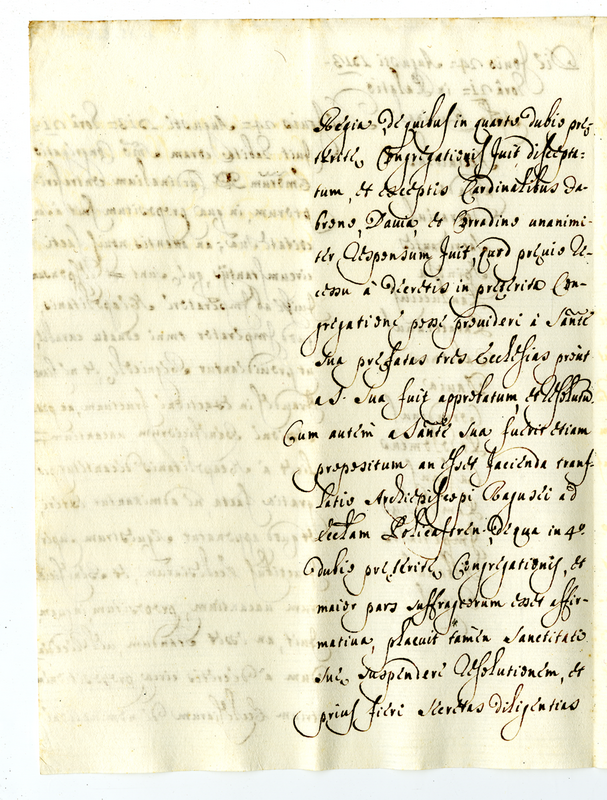 Regia, de quibus in quarto dubio præ-
teritæ Congregationis fuit discepta-
tum, et exceptis Cardinalibus Fa-
brono, Davia, et Corradino unanimi-
ter responsum fuit, quod prævio re-
cessu à decretis in præterita Con-
gregatione posse provideri à Sanctē
Sua præfatas tres Ecclesias prout
a S. Sua fuit approbatum, et resolutū.
Cum autem a Sanctē Sua fuerit etiam
propositum an esset facienda trans-
latio Archiepiscopi Ragusei ad
Ecclām Policastren. de qua in 4º.
dubio præteritæ Congregationis, et
maior pars suffragiorum esset affir-
mativa, placuit tamen Sanctitati
suæ suspendere resolutionem, et
prius fieri secretas diligentias